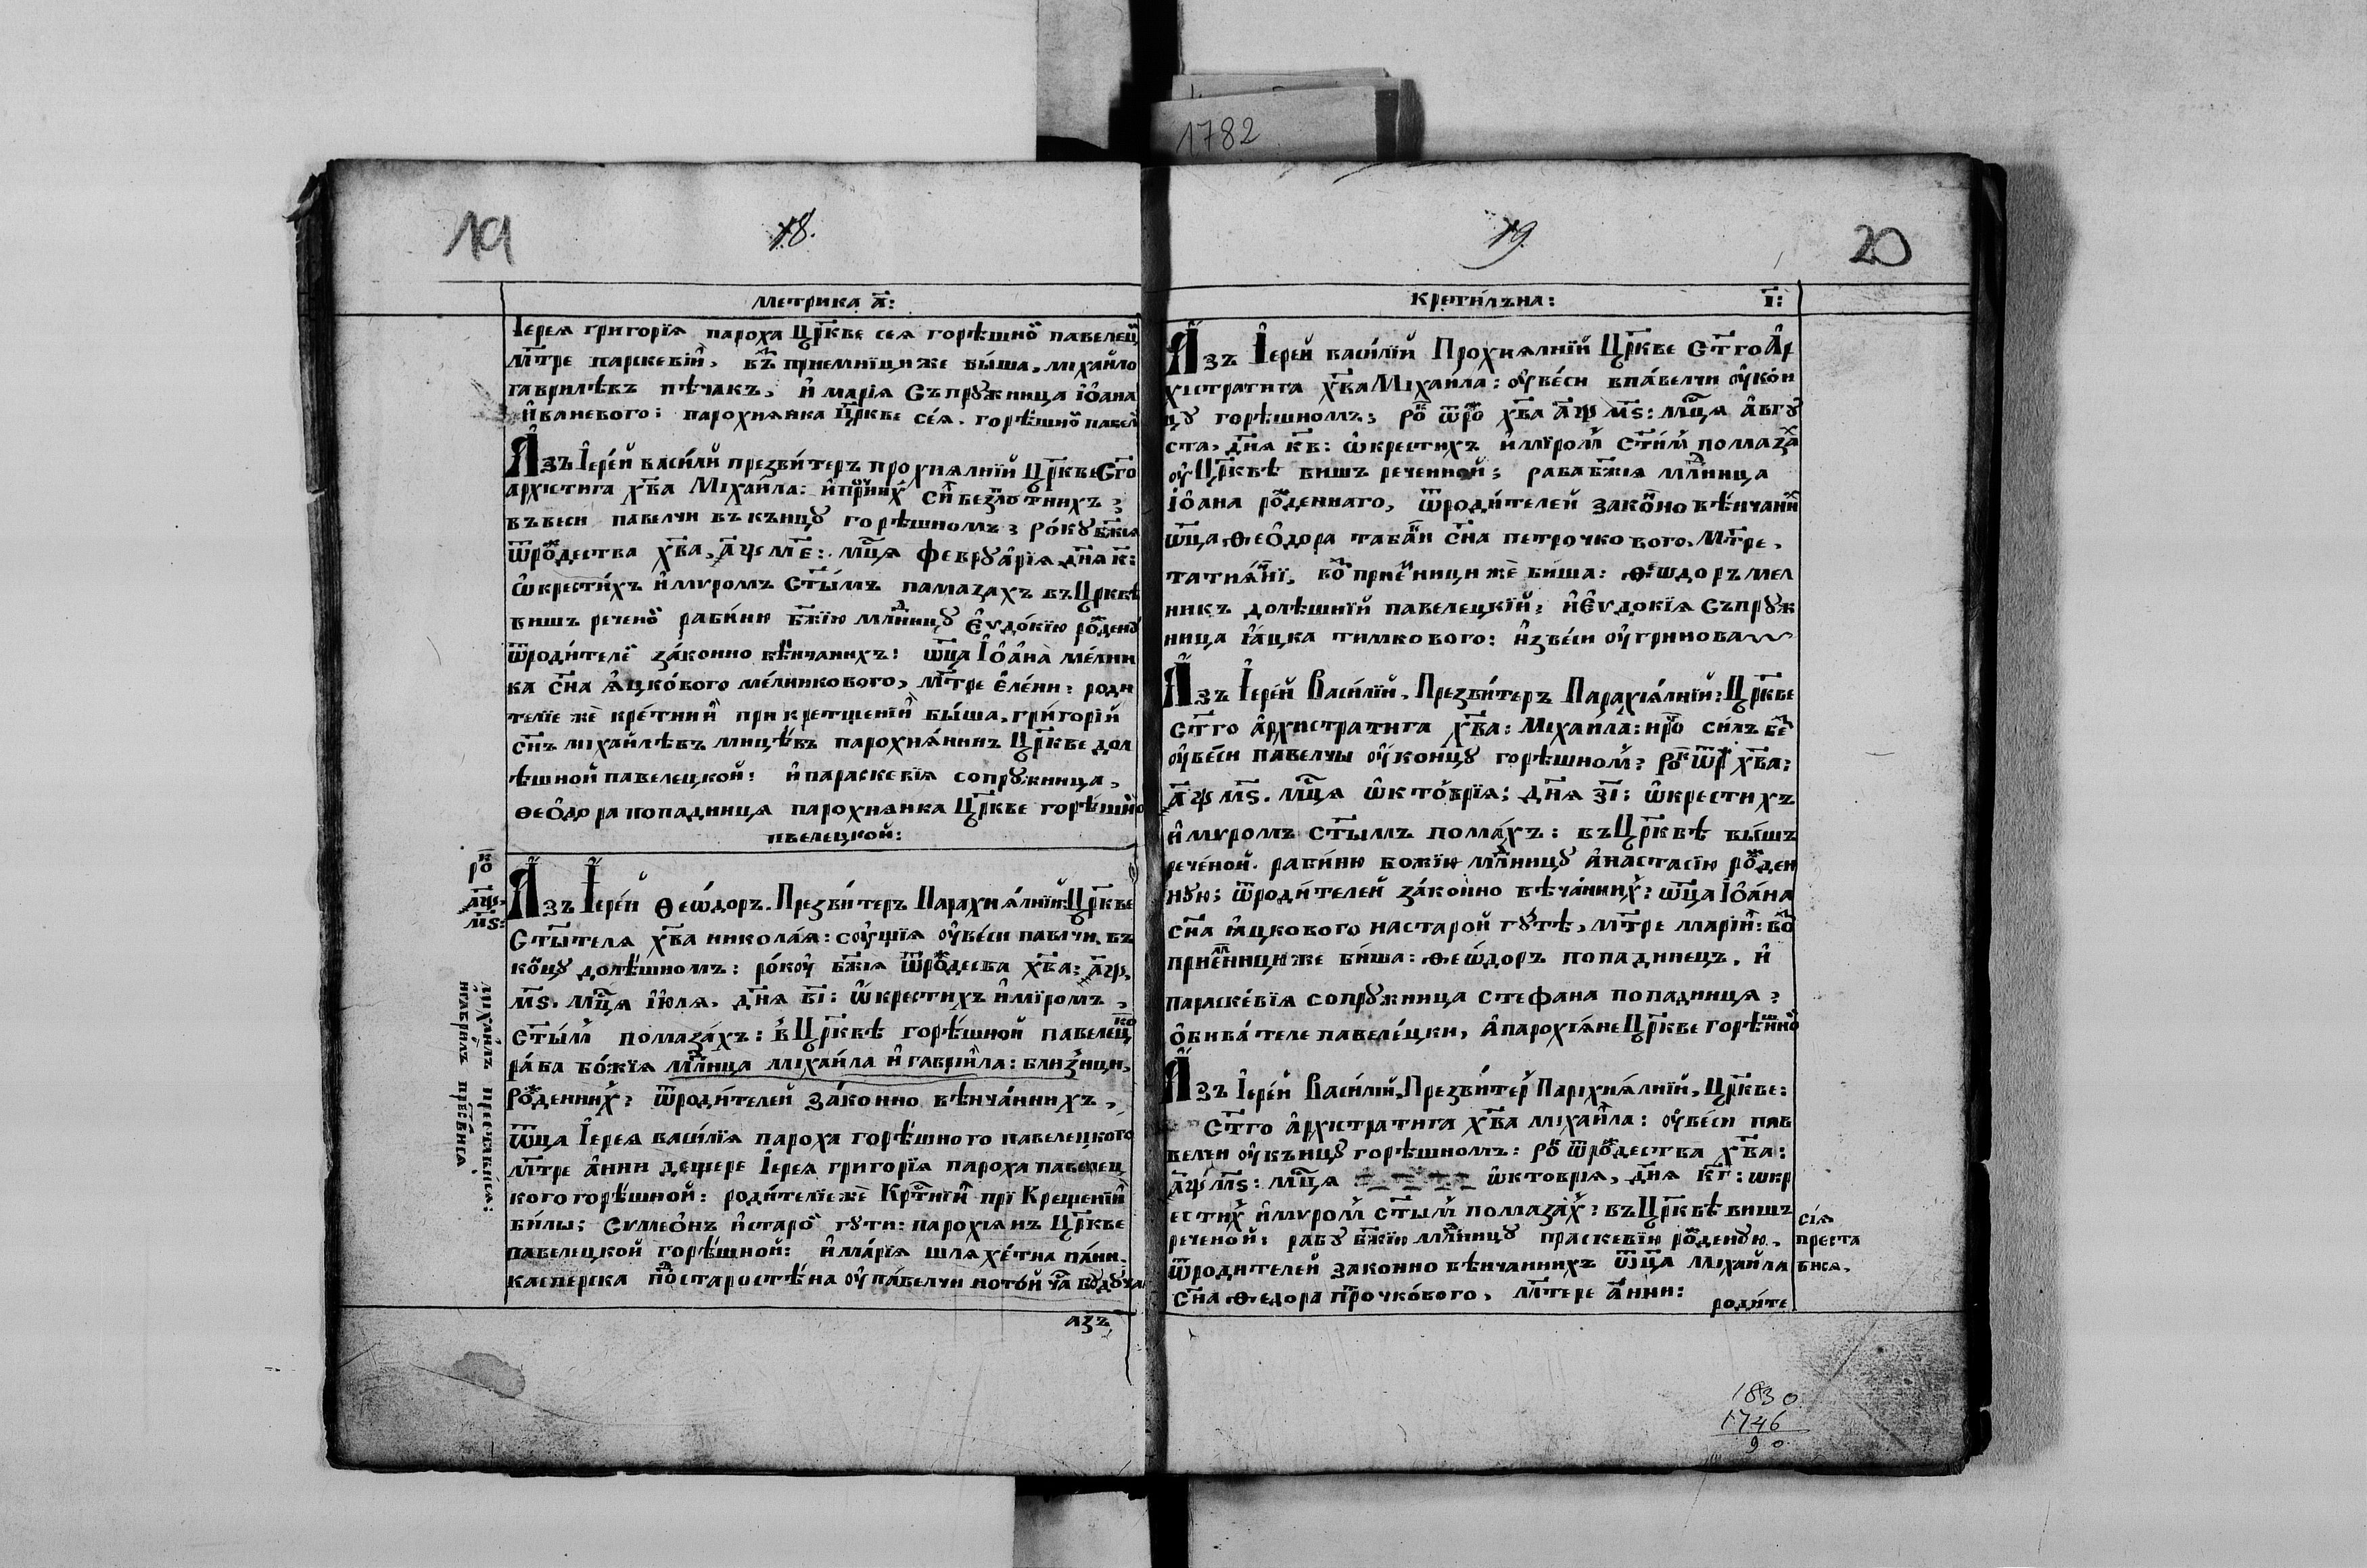 1782
19
18.
Метрика а҃:
Іерея григорїя пароха Цр҃кве сея горѣшно павелец
Мт҃ре параскевїи, въ приемнїцижебыша, міхайло
гаврилѣвъ пѣчакъ, и марїя Съпружница іоана
иваневого: парохиянка Цр҃кве сея. горѣшно павел
Азъ Іерей василїй презвитеръ прохиялнїй Цр҃кве Ст҃го
архістига хв҃а Міхаила:
въвеси павелчи въкънцу горѣшномъ; року бж҃ія
ѿрождества хв҃а, а҃ѱм҃е: мц҃а февруарїя дн҃я к҃:
ѡкрестихъ имуромъ Ст҃ымъ памазахъ въЦр҃квѣ
вишъ речено рабиню бж҃їю млн҃ицу Еѵдокїю рожден
ѿродителе законно вѣнчанихъ: ѡц҃а Іоана мелни
ка сн҃а яцкового мелникового, мт҃ре елени: роди
телїе же кретнии при кретщенїи быша, григорїй
сн҃ъ міхаилѣвъ мицѣвъ парохиянинъ Цр҃кве дол
ѣшной павелецкой: ипараскевїя сопружница,
ѳеодора попадинця парохиянка Цр҃кве горѣшно
пвелецкой:
рок
а҃ѱ
м҃ѕ:
Азъ Іерей Ѳеѡдоръ. Презвитеръ Парахиялнїй: Цр҃кве
Ст҃ытеля хв҃а николая: соущїя оувеси павлчи. въ
концу долѣшномъ: рокоу бж҃ія ѿрождесва хв҃а: а҃ѱ.
м҃ѕ. мц҃я іюля. дн҃я в҃і: ѡкрестихъ имїромъ,
ст҃ым помазахъ: вЦр҃квѣ горѣшной павелецко
раба божїя млн҃ица міхаила и гаврїила: близници,
рожденних: ѿродителей законно вѣнчаннихъ,
Ѿц҃а Іерея василїя пароха горѣшного павелецкого
мт҃ре анни дещере Іерея григорїя пароха павелец
кого горѣшной: родителїеже Кртнїи прї Крещенїи
били: Сѵмеонъ истаро гути: парохіянъ Цр҃кве
павелецкой горѣшной: имарїя шляхетна панн.
касперска постаростѣна оу павелчи
азъ
міхаилъ преставися:
игаврилъ прествися
19
20
Кретилъна: і҃:
Азъ Іерей василїй Прохиялнїй Цр҃кве Ст҃го Ар
хістратига хв҃а Міхаила: оувеси впавелчи оукон
цу горѣшномъ; ро ѿро хв҃а а҃ѱ м҃ѕ: мц҃я авгу
ста, дн҃я к҃в: ѡкрестихъ имїром Ст҃им помаза
оуЦр҃квѣ вишъ реченной; раба бж҃ія млн҃ица
іоана рожденнаго, ѿродителей законо вѣнчани
ѡц҃а, Ѳеодора табан сн҃а петрочкового. Мт҃ре,
татияни, во приемници же биша: Ѳеѡдоръ мел
никъ долѣшнїй павелецкїй; иЕѵдокїя Съпруж
ница Іацка тимкового: изъвеси оугринова
Азъ Іерей Василїй, Презвитеръ Парахіялнїй: Цр҃кве
Ст҃го архистратига хв҃а: Міхаила: ипро силъ бе
оувеси павелчы оуконцу горѣшном: рок ѿр хв҃а:
а҃ѱ м҃ѕ. мц҃я ѡктоврїя: дн҃я з҃і: ѡкрестихъ
имуромъ ст҃ымъ помахъ: въЦр҃квѣ вышъ
реченой. рабиню божїю млн҃ицу анастасїю рожден
ную; ѿродителей законно вѣчанних: ѿц҃а Іоана
сн҃а іацкового настарой гутѣ, мт҃ре марїи: во
приемницїже биша: Ѳеѡдоръ попадинецъ, и
параскевїя сопружница стефана попадинця:
обивателе павелецки, апарохіяне Цр҃кве горѣшно
Азъ Іерей Василїй, Презвитер Паріхиялнїй, Цр҃кве:
Ст҃го архістратига хв҃а міхаила: оувеси пав
велчи оукънцу горѣшномъ: ро ѿрождества хв҃а:
а҃ѱ м҃ѕ: мц҃я ѡктоврїя, дн҃я к҃г: ѡкр
естих имуром ст҃ым помазах: въЦр҃квѣ вишъ
реченой: рабу бж҃їю млн҃ицу праскевїю рожденую.
ѿродителей законно вѣнчаннихъ ѿц҃а Міхаила
сн҃а Ѳедора прочкового, мт҃ере анни:
родите
сїя
преста
вися.
1830
1746
90